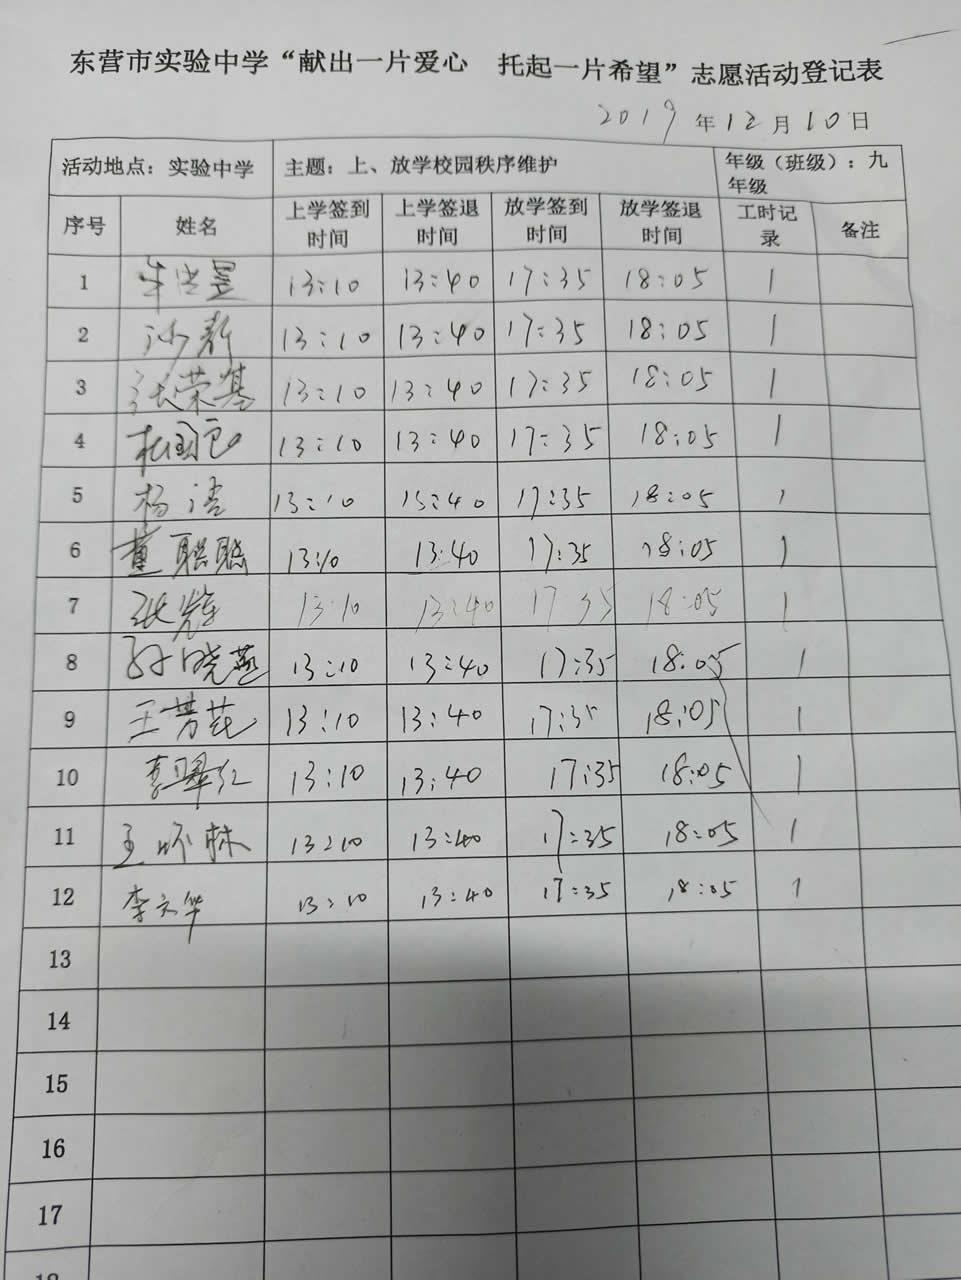 东营市实验中学“献出一片爱心 托起一片希望”志愿活动登记表
2019年12月10日
活动地点：实验中学 主题：上、放学校园秩序维护 年级（班级）：九年级
序号 姓名 上学签到时间 上学签退时间 放学签到时间 放学签退时间 工时记录 备注
1 13:10 13:40 17:35 18:05 1
2 13:10 13:40 17:35 18:05 1
3 张荣基 13:10 13:40 17:35 18:05 1
4 13:10 13:40 17:35 18:05 1
5 杨洁 13:10 13:40 17:35 18:05 1
6 董聪聪 13:10 13:40 17:35 18:05 1
7 13:10 13:40 17:35 18:05 1
8 孙晓燕 13:10 13:40 17:35 18:05 1
9 王芳花 13:10 13:40 17:35 18:05 1
10 李翠红 13:10 13:40 17:35 18:05 1
11 王怀林 13:10 13:40 17:35 18:05 1
12 李文华 13:10 13:40 17:35 18:05 1
13
14
15
16
17
18